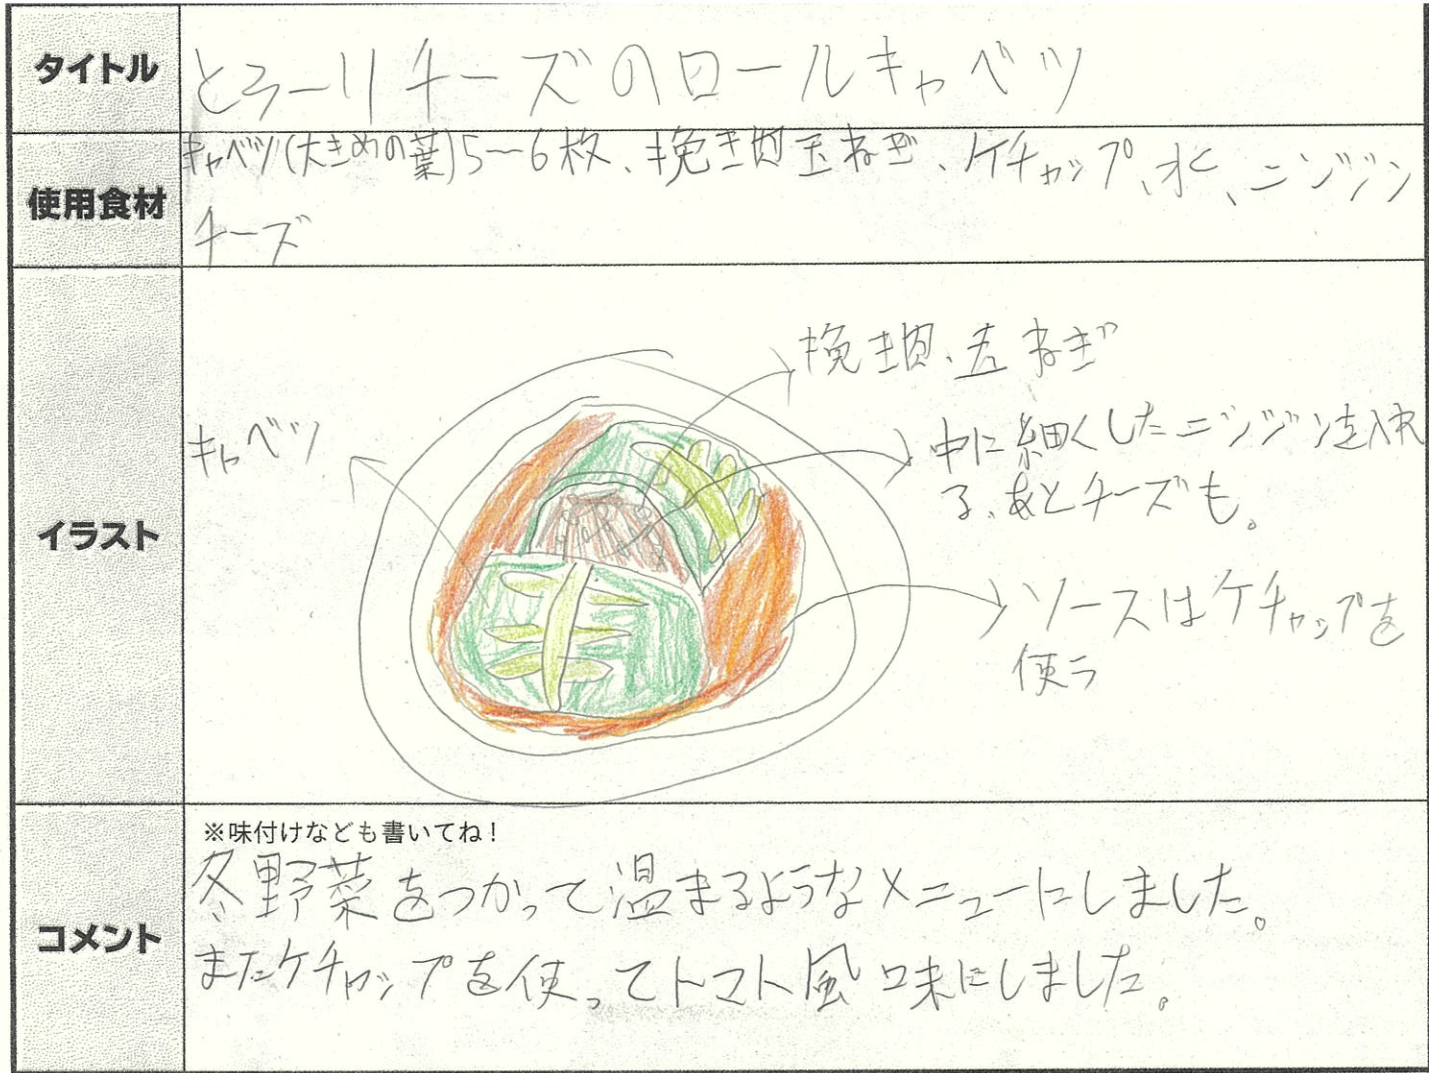 タイトル
とろーりチーズのロールキャベツ
使用食材
キャベツ(大きめの葉)5〜6枚、挽き肉玉ねぎ、ケチャップ、水、ニンジン
チーズ
イラスト
挽き肉、玉ねぎ
キャベツ
中に細くしたニンジンを入れ
る、あとチーズも。
ソースはケチャップを
使う
コメント
※味付けなども書いてね！
冬野菜をつかって温まるようなメニューにしました。
またケチャップを使ってトマト風味にしました。